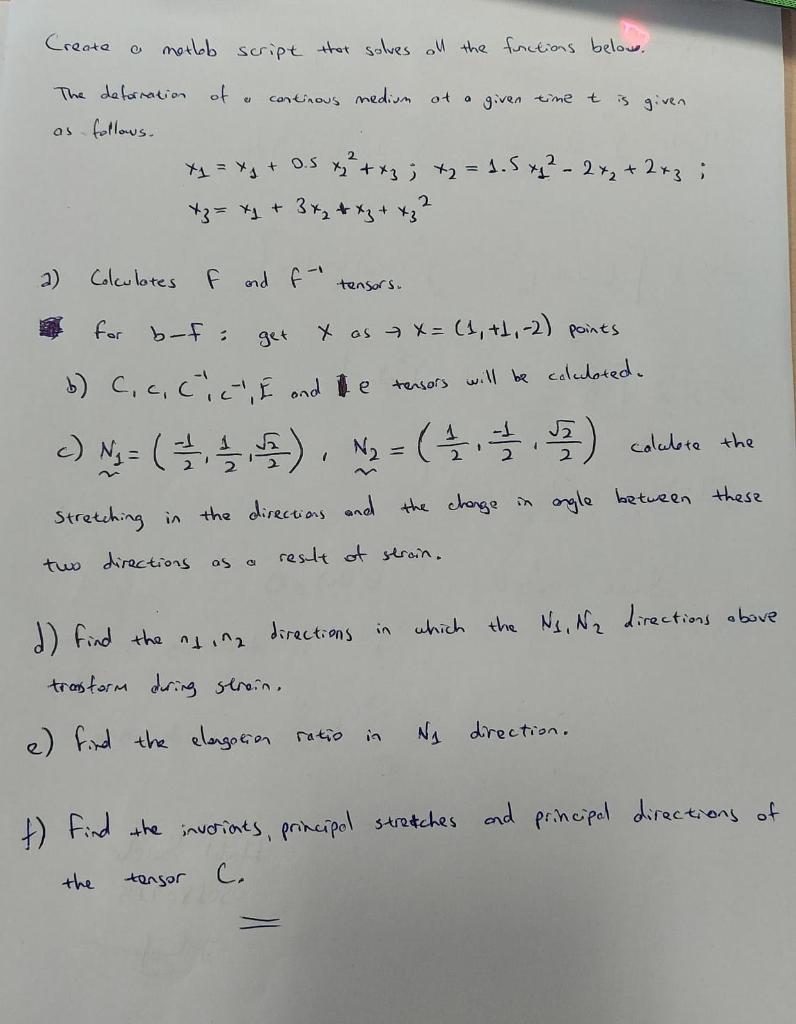 Create a matlab script that solves all the functions below.
The deformation of a continous medium at a given time t is given
as follows.
x₁ = x₁ + 0.5 x₂² + x₃ ; x₂ = 1.5 x₁² - 2x₂ + 2x₃ ;
x₃ = x₁ + 3x₂ + x₃ + x₃²
a) Calculates F and F⁻¹ tensors.
for b-f : get X as → X = (1, +1, -2) points
b) C, c, C⁻¹, c⁻¹, E and e tensors will be calculated.
c) N₁ = (-1/2, 1/2, √2/2), N₂ = (1/2, -1/2, √2/2) calculate the
stretching in the directions and the change in angle between these
two directions as a result of strain.
d) Find the n₁, n₂ directions in which the N₁, N₂ directions above
transform during strain.
e) Find the elongation ratio in N₁ direction.
f) Find the invariants, principal stretches and principal directions of
the tensor C.